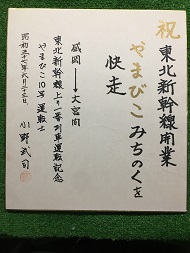 祝
東北新幹線開業
やまびこみちのくを
快走
盛岡→大宮間
東北新幹線上り一番列車運転記念
やまびこ10号運転士
昭和五十七年六月二十三日
小野武司